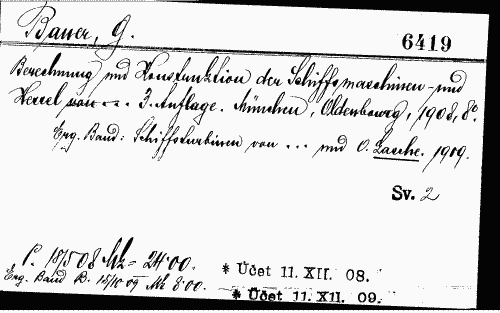 Bauer, G.
6419
Berechnung und Konstruktion der Schiffsmaschinen - und
Kessel von ... 3. Auflage. München, Oldenbourg, 1908, 8º.
Erg. Band: Schiffsturbinen von ... und O. Lasche. 1909.
Sv. 2
P. 18/5 08 Mk = 24.00.
* Účet 11. XII. 08.
Erg. Band B. 15/10 09 Mk 8.00.
* Účet 11. XII. 09.